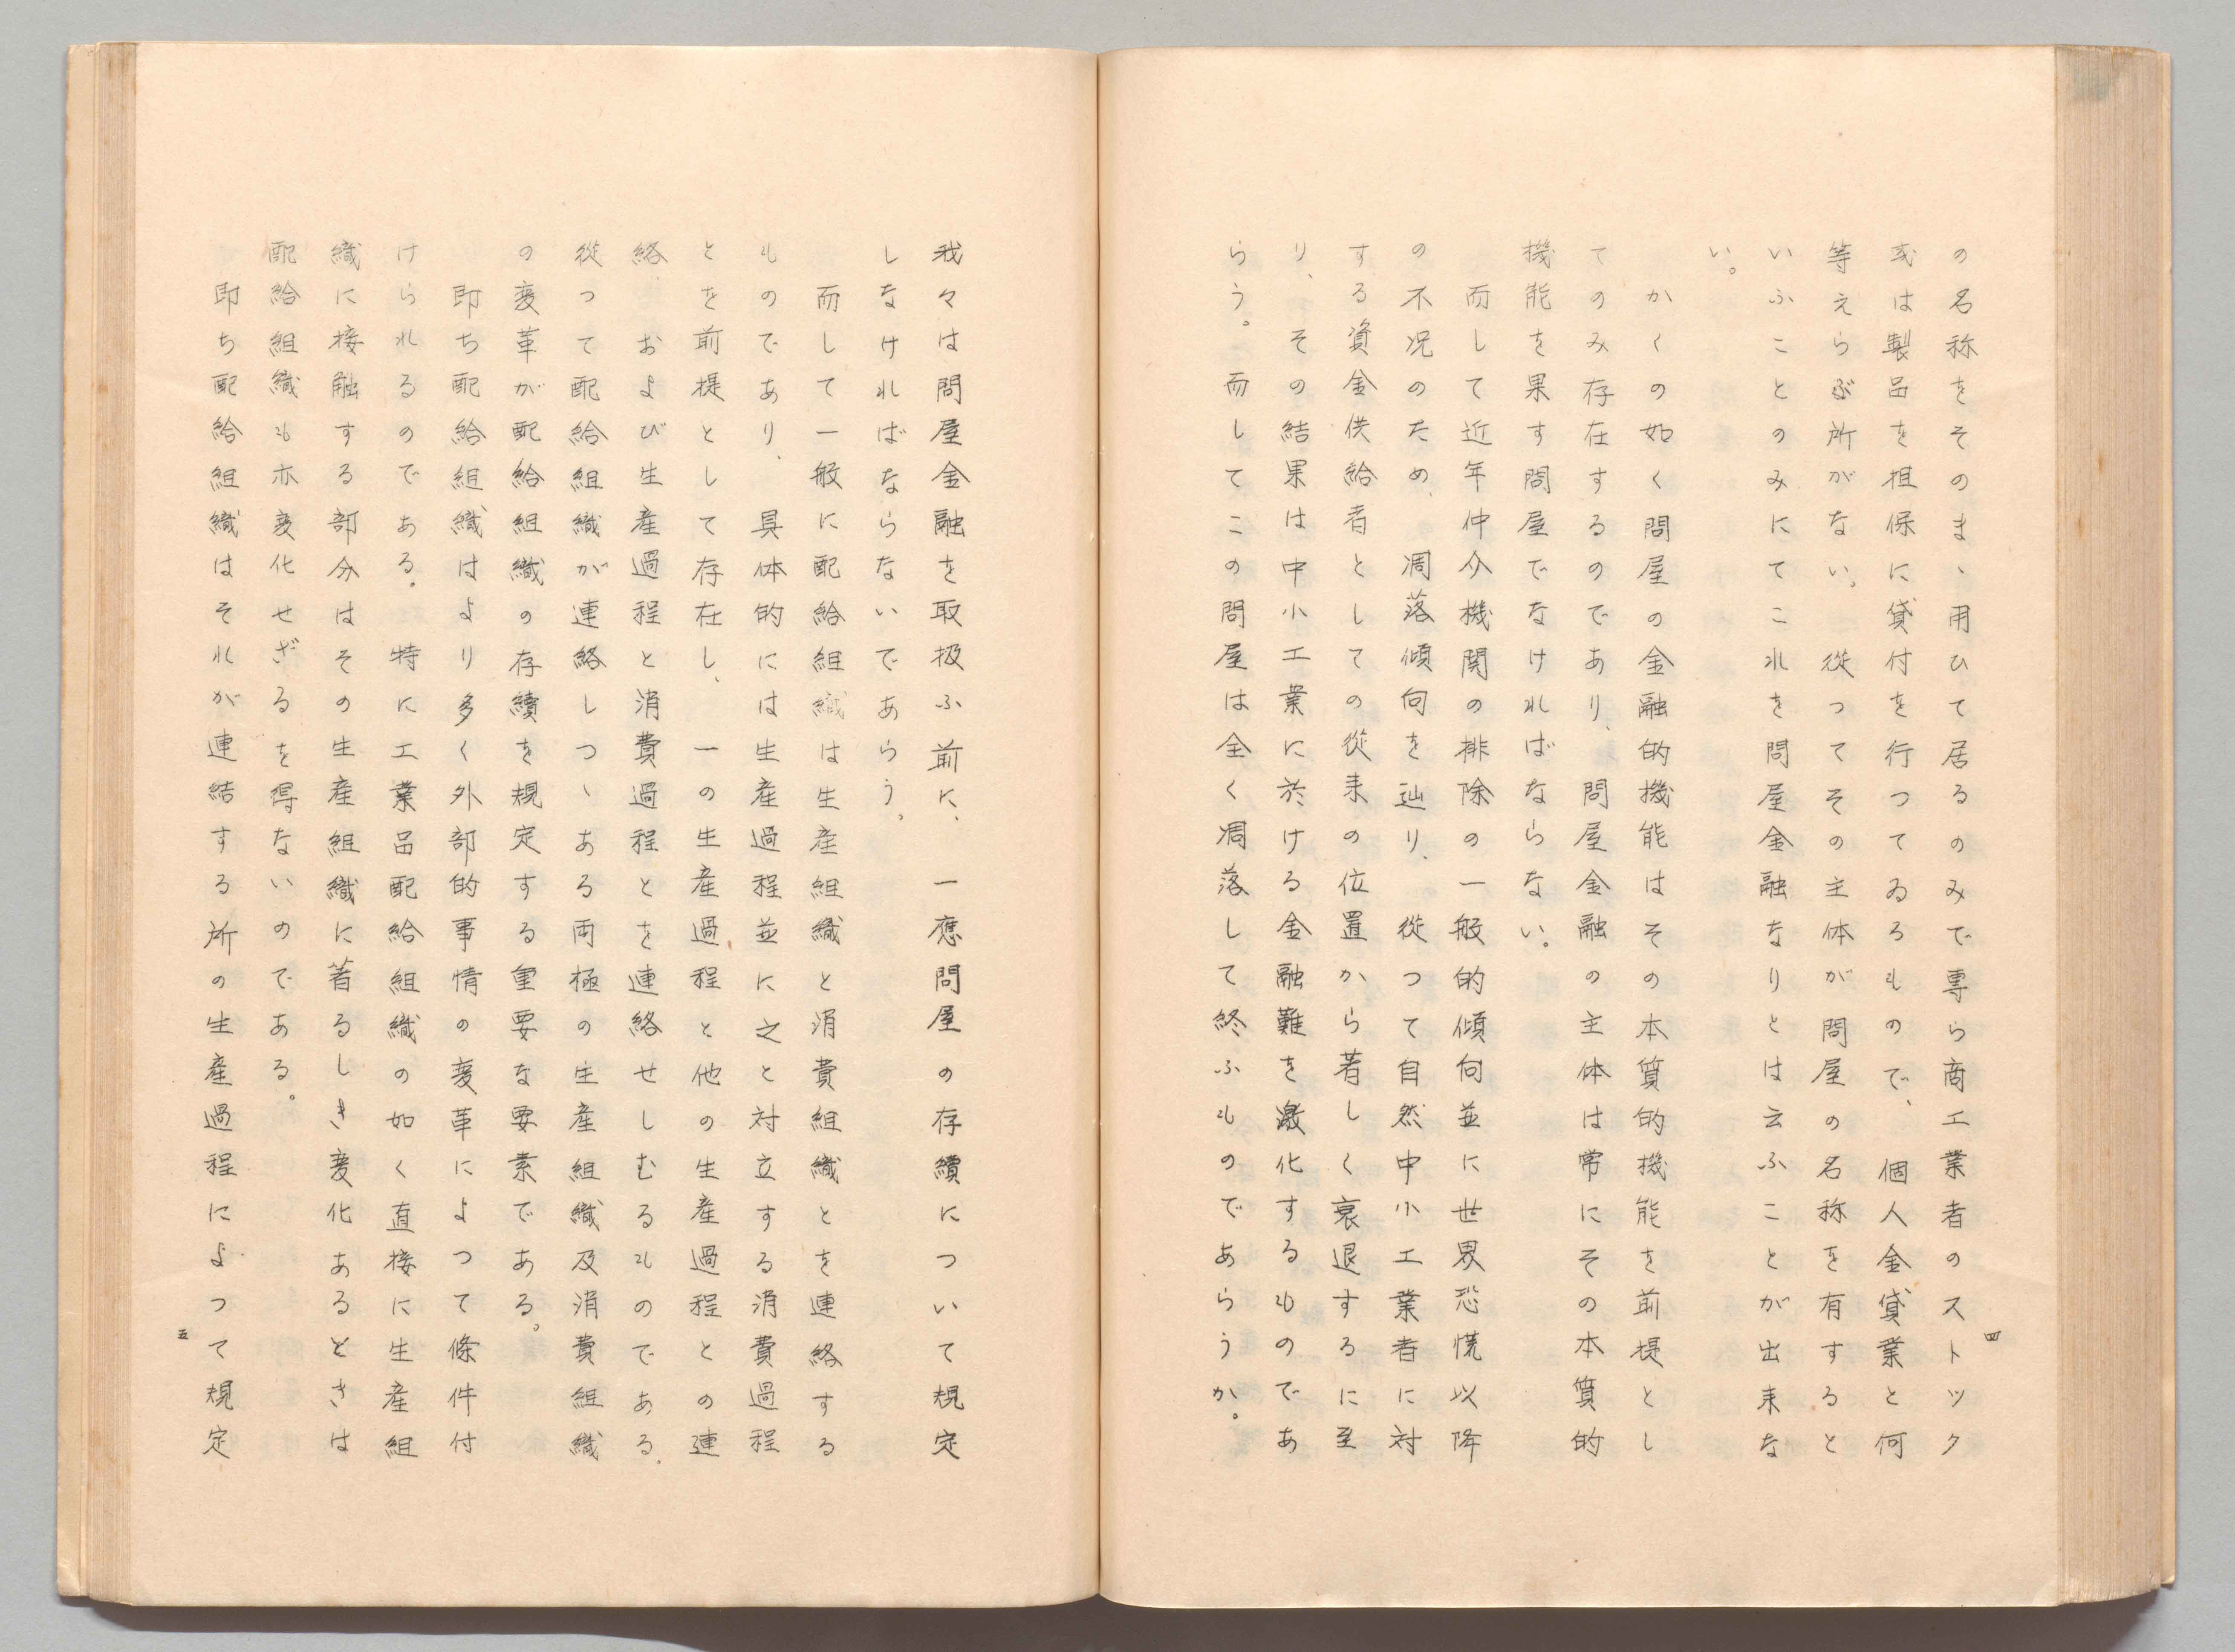 の名称をそのまゝ用ひて居るのみで専ら商工業者のストック
或は製品を担保に貸付を行つてゐるもので、個人金貸業と何
等えらぶ所がない。従つてその主体が問屋の名称を有すると
いふことのみにてこれを問屋金融なりとは云ふことが出来な
い。
かくの如く問屋の金融的機能はその本質的機能を前提とし
てのみ存在するのであり、問屋金融の主体は常にその本質的
機能を果す問屋でなければならない。
而して近年仲介機関の排除の一般的傾向並に世界恐慌以降
の不況のため、凋落傾向を辿り、従つて自然中小工業者に対
する資金供給者としての従来の位置から著しく衰退するに至
り、その結果は中小工業に於ける金融難を激化するものであ
らう。而してこの問屋は全く凋落して終ふものであらうか。
四
我々は問屋金融を取扱ふ前に、一應問屋の存續について規定
しなければならないであらう。
而して一般に配給組織は生産組織と消費組織とを連絡する
ものであり、具体的には生産過程並に之と対立する消費過程
とを前提として存在し、一の生産過程と他の生産過程との連
絡、および生産過程と消費過程とを連絡せしむるものである。
従つて配給組織が連絡しつゝある両極の生産組織及消費組織
の変革が配給組織の存續を規定する重要な要素である。
即ち配給組織はより多く外部的事情の変革によつて條件付
けられるのである。特に工業品配給組織の如く直接に生産組
織に接触する部分はその生産組織に著るしき変化あるときは
配給組織も亦変化せざるを得ないのである。
即ち配給組織はそれが連結する所の生産過程によつて規定
五